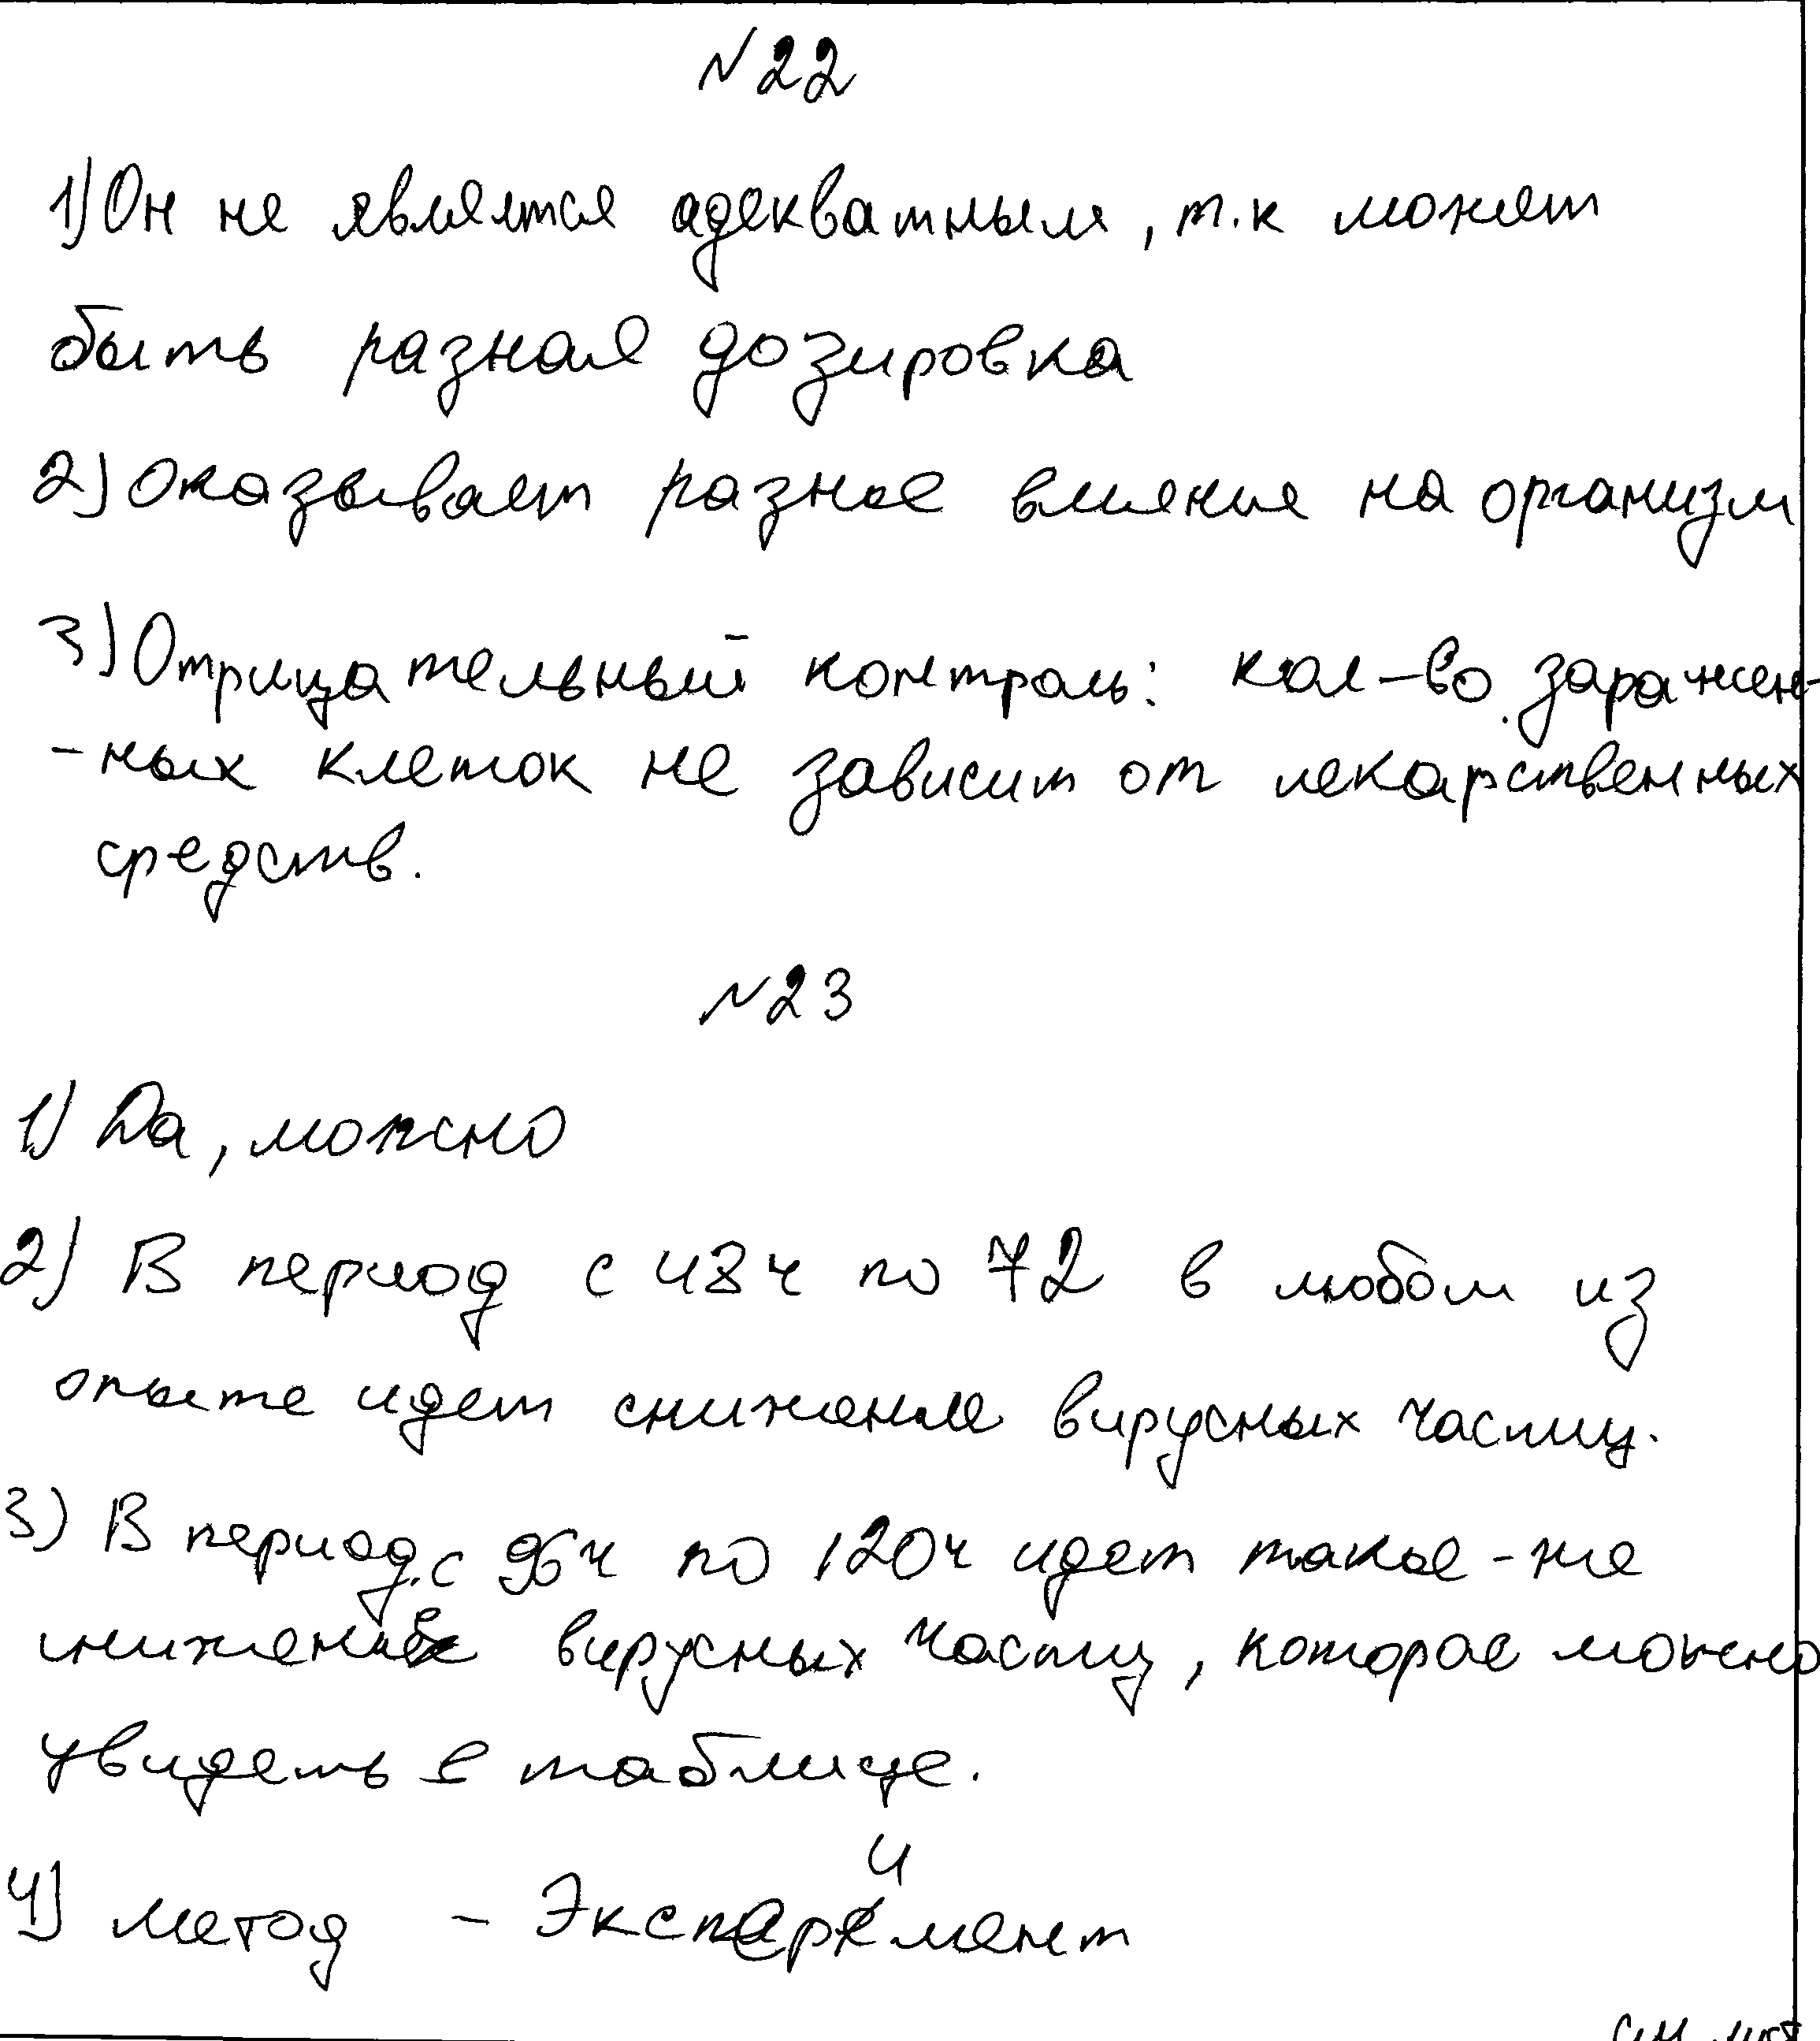 №22
1) Он не является адекватным, т.к может
быть разная дозировка
2) оказывает разное влияние на организм
3) Отрицательный контроль: кол-во заражен-
-ных клеток не зависит от лекарственных
средств.
№23
1) Да, можно
2) В период с 48ч по 72 в любом из
опыте идет снижение вирусных частиц.
3) В период с 96ч по 120ч идет такое-же
снижение вирусных частиц, которое можно
увидеть в таблице.
4) метод - Эксперимент